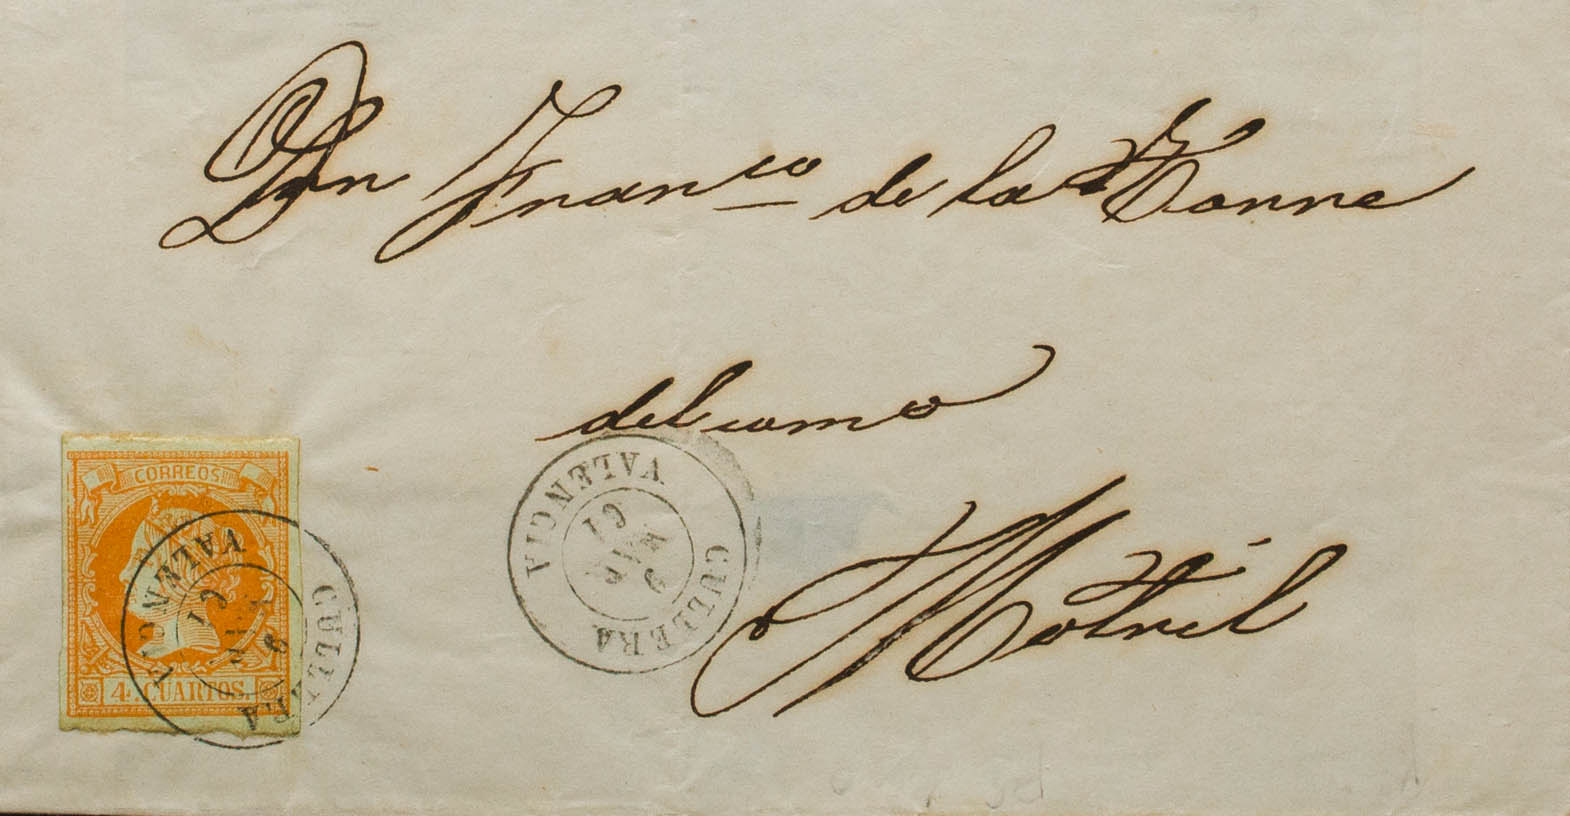 Don Fran.co de la Torre
del com.o
Motril
CORREOS
4 CUARTOS.
CULLERA
VALENCIA
9
61
CULLERA
VALENCIA
9
MAR
61